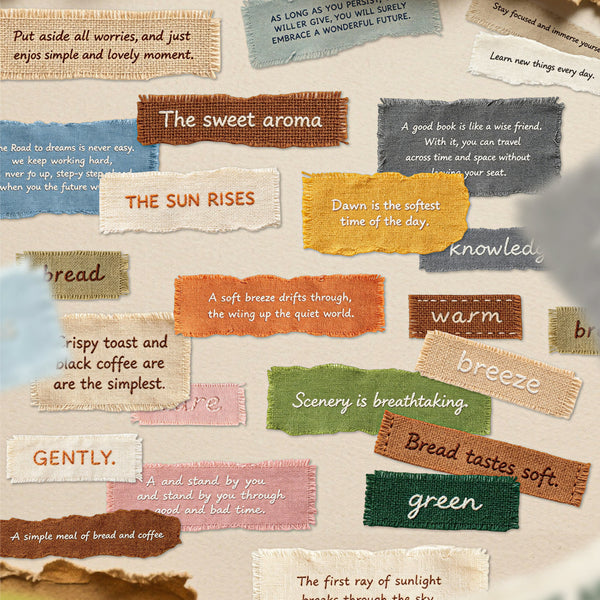 Put aside all worries, and just
enjos simple and lovely moment.
AS LONG AS YOU PERSIST
WILLER GIVE, YOU WILL SURELY
EMBRACE A WONDERFUL FUTURE.
Stay focused and immerse yourse
Learn new things every day.
The sweet aroma
A good book is like a wise friend.
With it, you can travel
across time and space without
leaving your seat.
he Road to dreams is never easy.
we keep working hard,
never fo up, step-y step
when you the future w
THE SUN RISES
Dawn is the softest
time of the day.
knowledg
bread
A soft breeze drifts through,
the wiing up the quiet world.
warm
br
Crispy toast and
black coffee are
are the simplest.
breeze
Scenery is breathtaking.
Bread tastes soft.
GENTLY.
A and stand by you
and stand by you through
good and bad time.
green
A simple meal of bread and coffee
The first ray of sunlight
breaks through the sky